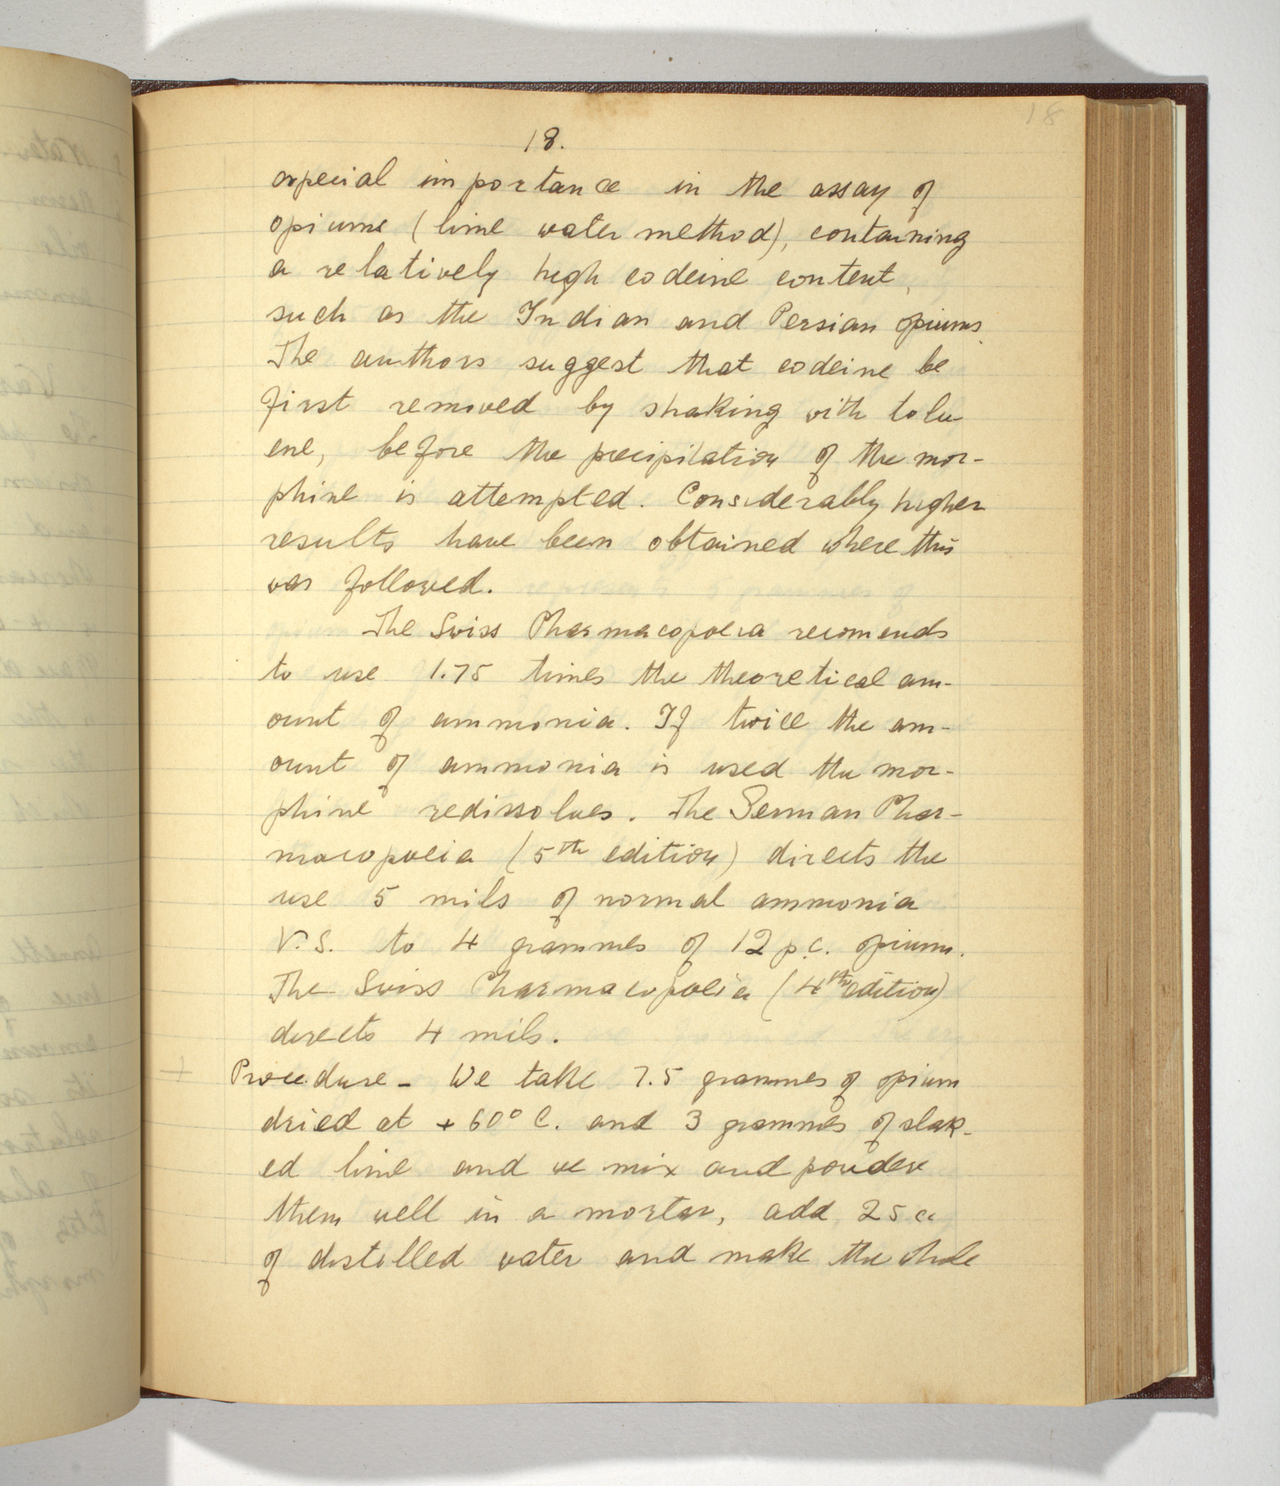 18
18.
especial importance in the assay of
opiums (lime water method), containing
a relatively high codeine content,
such as the Indian and Persian opiums.
The authors suggest that codeine be
first removed by shaking with tolu
ene, before the precipitation of the mor-
phine is attempted. Considerably higher
results have been obtained where this
was followed.
The Swiss Pharmacopoeia recomends
to use 1.75 times the theoretical am-
ount of ammonia. If twice the am-
ount of ammonia is used the mor-
phine redissolves. The German Phar-
macopoeia (5th edition) directs the
use 5 mils of normal ammonia
V.S. to 4 grammes of 12 p.c. opium.
The Swiss Pharmacopoeia (4th edition)
directs 4 mils.
+ Procedure - We take 7.5 grammes of opium
dried at +60° C. and 3 grammes of slak-
ed lime and we mix and powder
them well in a mortar, add 25 cc
of distilled water and make the whole